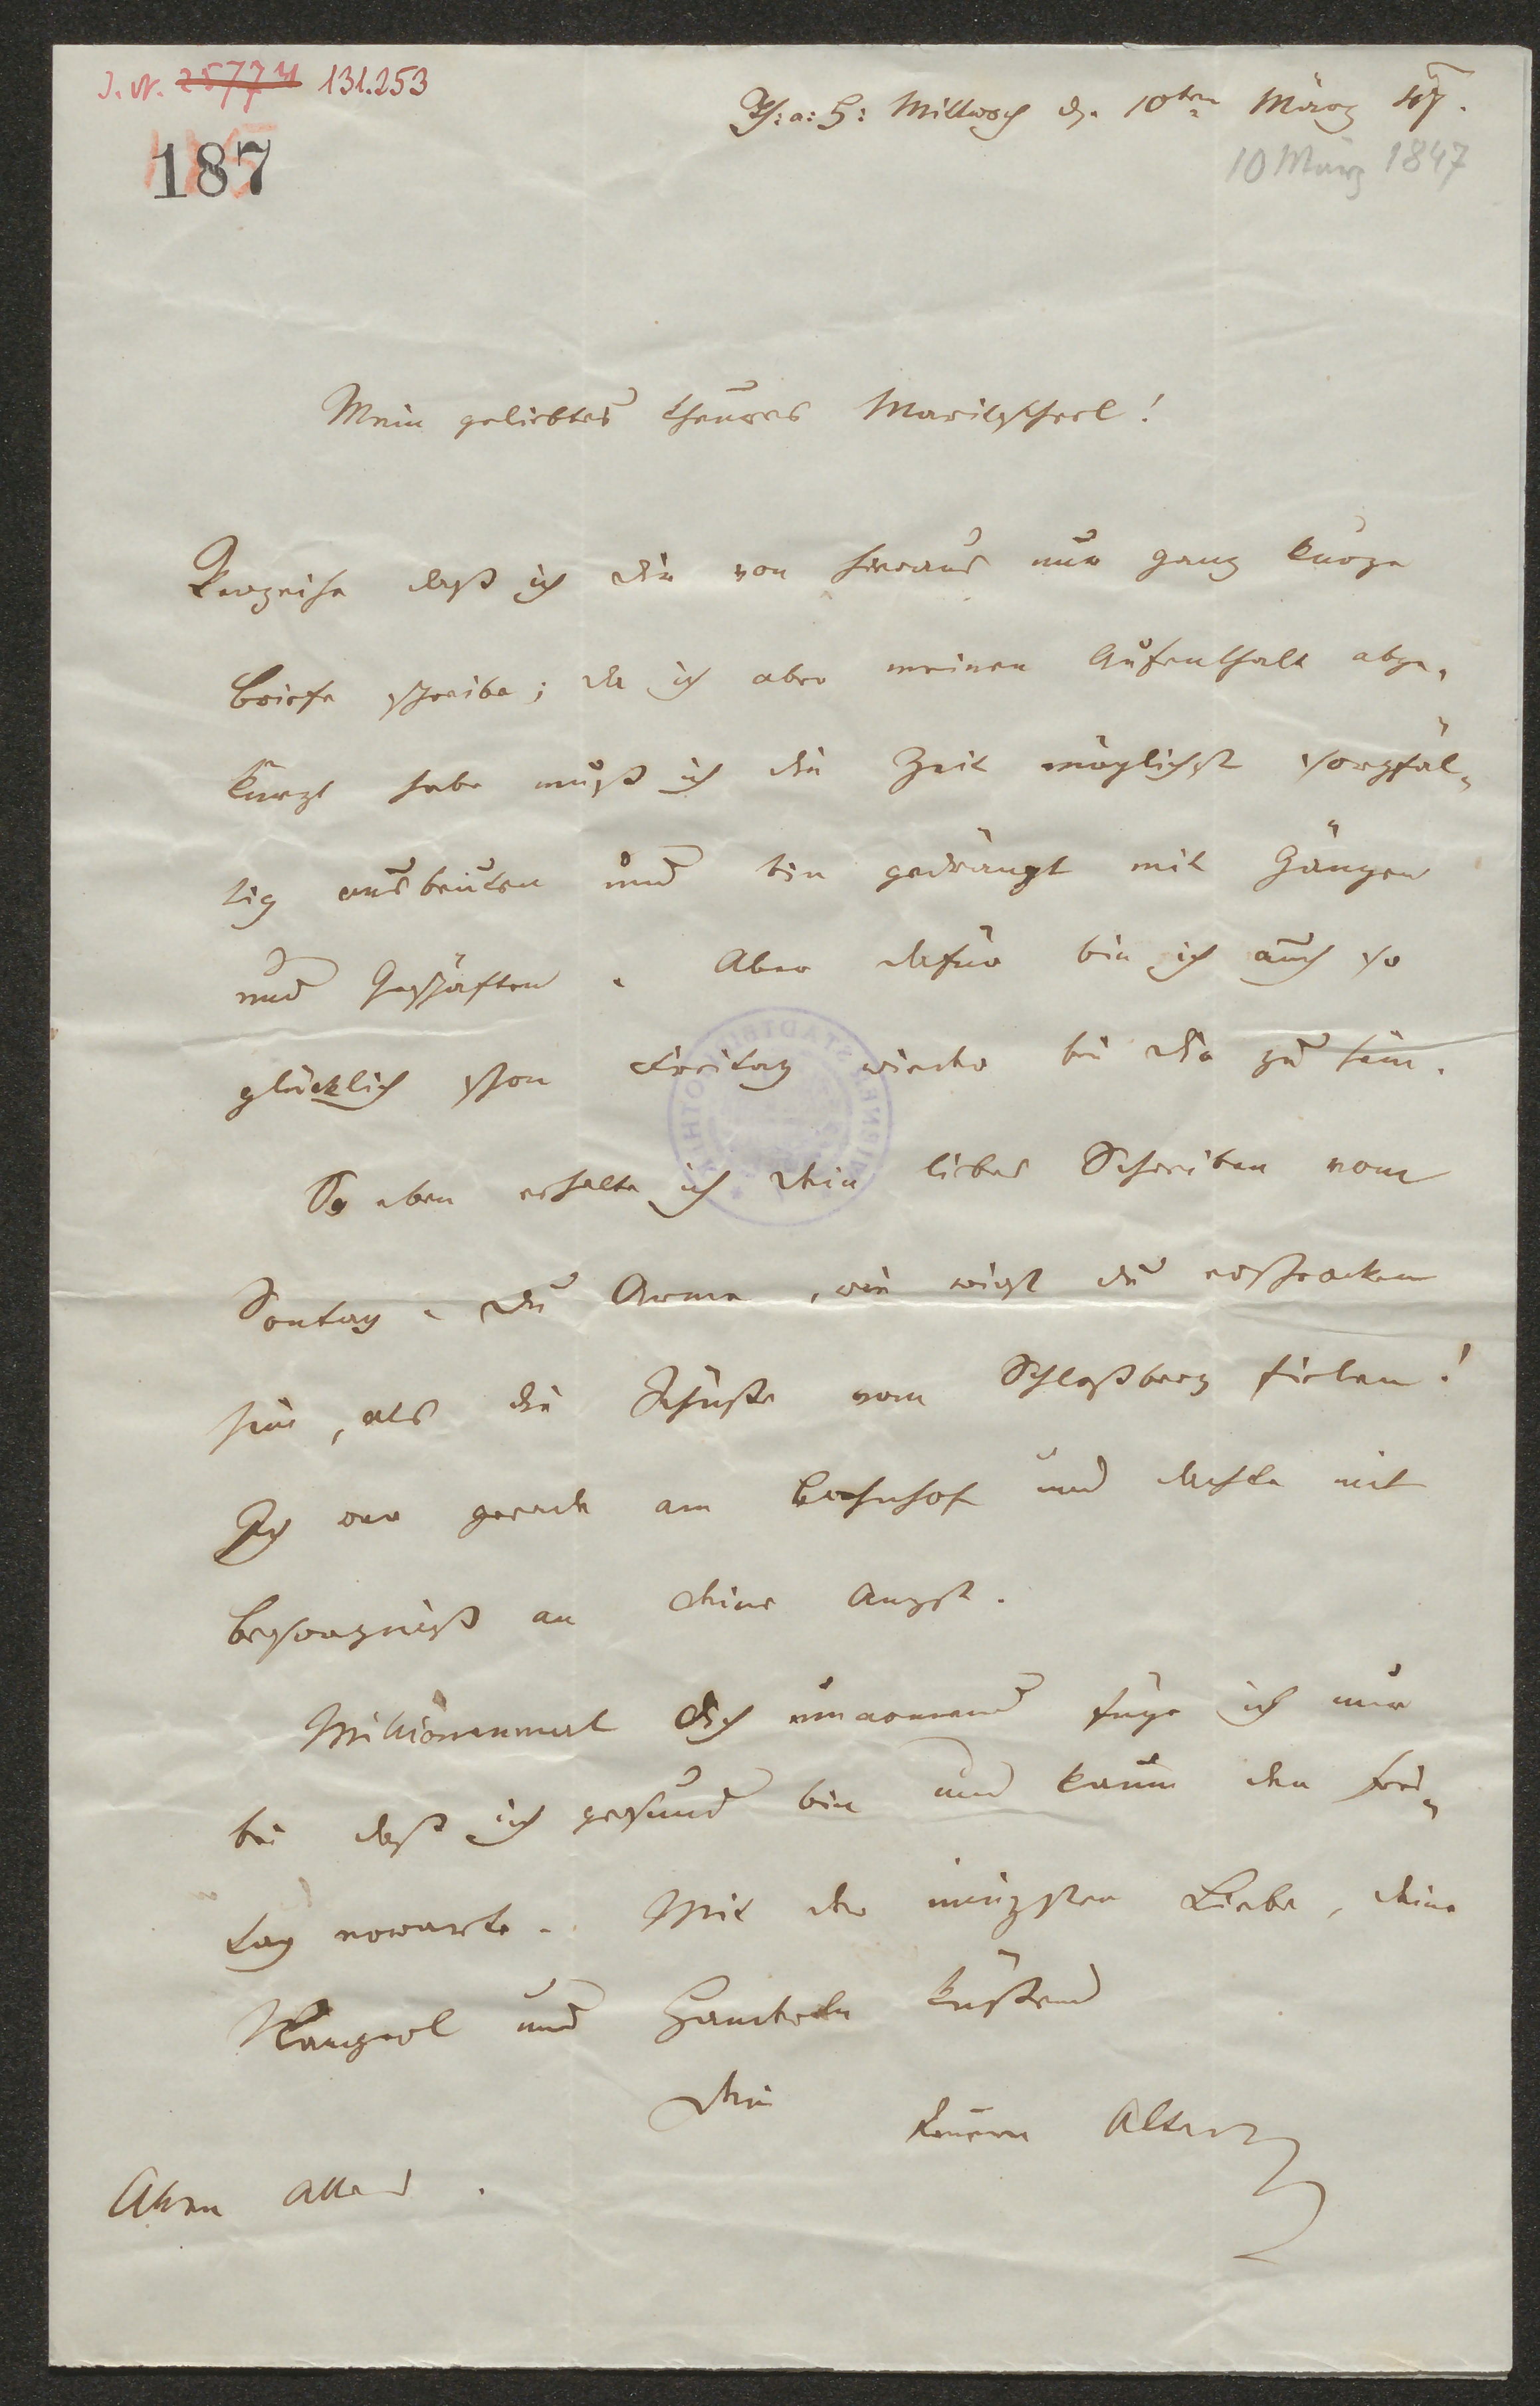 J. N. 25774 131.253
187
Th: a: H: Mittwoch d. 10ten März 47.
10 März 1847
Mein geliebtes theures Marieschherl!
Verzeihe daß ich dir von hieraus nur ganz kurze
Briefe schreibe; da ich aber meinen Aufenthalt abge-
kürzt habe muß ich die Zeit möglichst sorgfäl-
tig ausbeuten und bin gedrängt mit Gängen
und Geschäften. Aber dafür bin ich auch so
glücklich schon Freitag wieder bei dir zu sein.
So eben erhalte ich dein liebes Schreiben vom
Sontag. Du Arme, wie wirst du erschrocken
sein, als die Schüße vom Schloßberg fielen!
Ich war gerade am Bahnhof und dachte mit
Besorgniß an deine Angst.
Millionenmal dich umarmend füge ich nur
bei daß ich gesund bin und kaum den Frei-
tag erwarte. Mit der innigsten Liebe, deine
und Handerln küßend
dein
treuer Alter
Allen Alles.
WIENER STADTBIBLIOTHEK